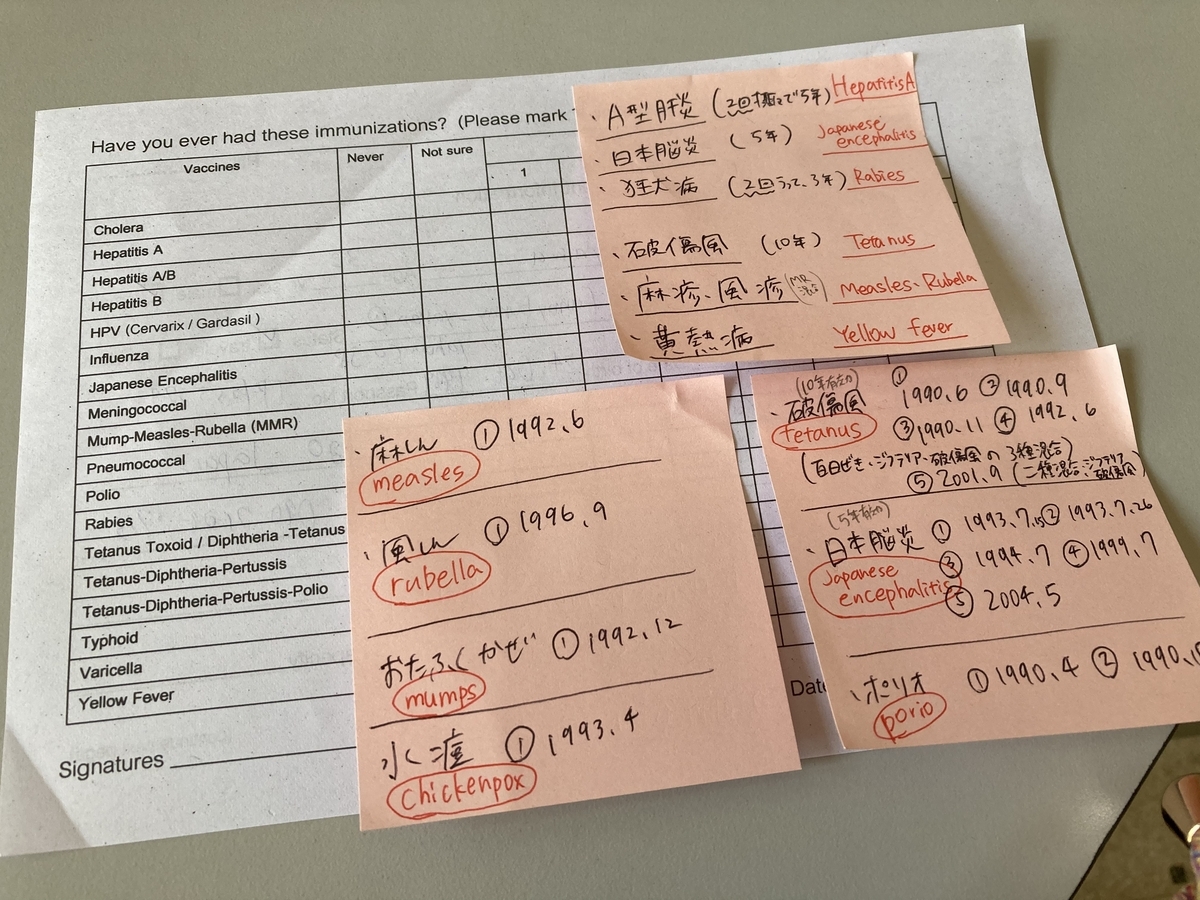 Have you ever had these immunizations? (Please mark
Vaccines Never Not sure
1
Cholera
Hepatitis A
Hepatitis A/B
Hepatitis B
HPV (Cervarix / Gardasil )
Influenza
Japanese Encephalitis
Meningococcal
Mump-Measles-Rubella (MMR)
Pneumococcal
Polio
Rabies
Tetanus Toxoid / Diphtheria -Tetanus
Tetanus-Diphtheria-Pertussis
Tetanus-Diphtheria-Pertussis-Polio
Typhoid
Varicella
Yellow Fever
Signatures
Date
・A型肝炎 (2回接種で5年) Hepatitis A
・日本脳炎 (5年) Japanese
encephalitis
・狂犬病 (2回うって、3年) Rabies
・破傷風 (10年) Tetanus
・麻疹、風疹 MR混合 Measles・Rubella
・黄熱病 Yellow fever
・麻しん ① 1992.6
measles
・風しん ① 1996.9
rubella
おたふくかぜ ① 1992.12
mumps
水痘 ① 1993.4
chickenpox
(10年有効)
・破傷風 ① 1990.6 ② 1990.9
tetanus ③ 1990.11 ④ 1992.6
(百日ぜき・ジフテリア・破傷風の3種混合)
⑤ 2001.9 (二種混合、ジフテリア破傷風)
(5年有効)
・日本脳炎 ① 1993.7.15 ② 1993.7.26
Japanese ③ 1994.7 ④ 1999.7
encephalitis ⑤ 2004.5
・ポリオ ① 1990.4 ②
porio